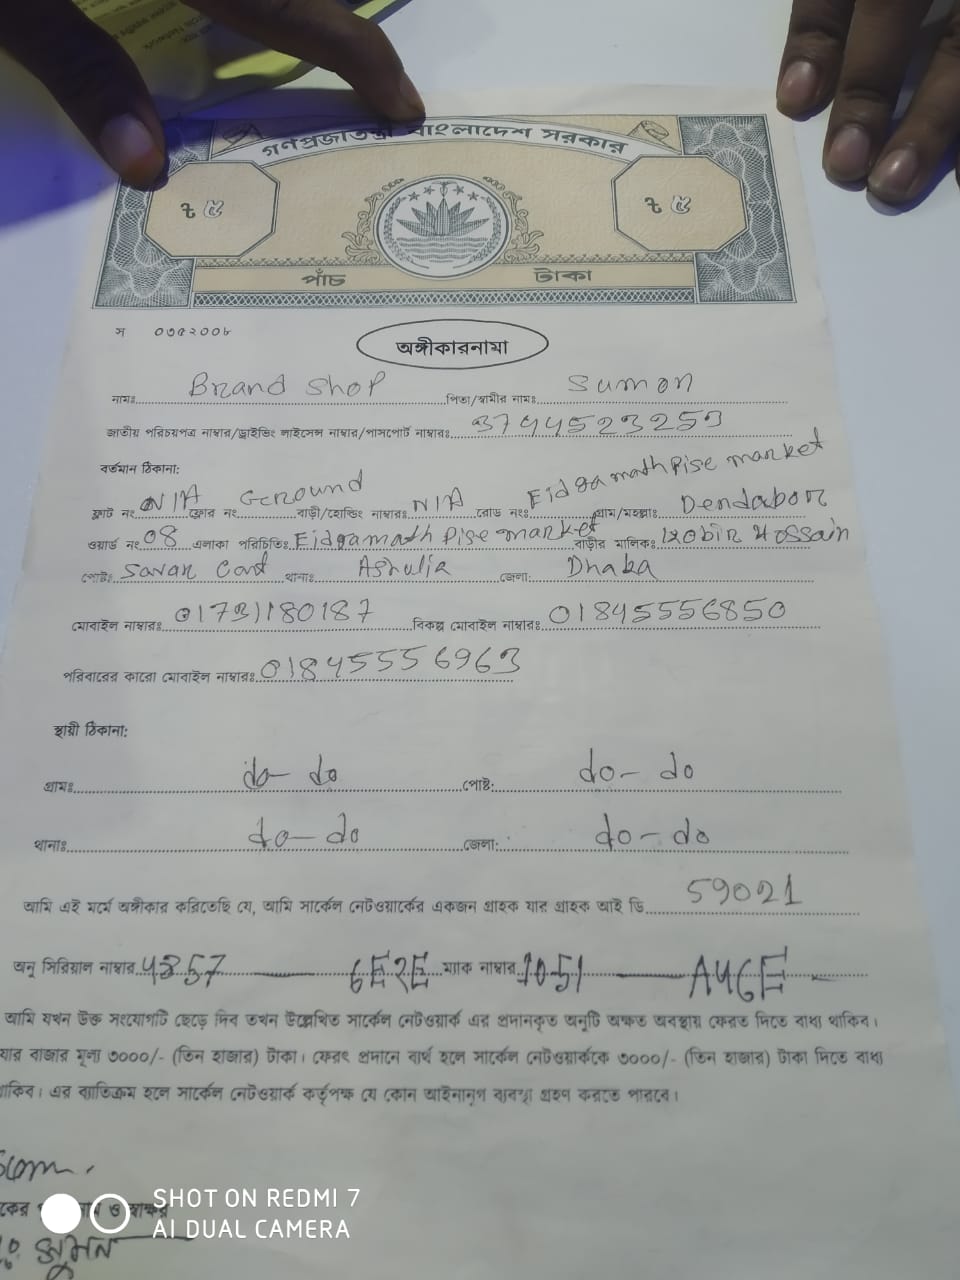 গণপ্রজাতন্ত্রী বাংলাদেশ সরকার
৳ ৫ ৳ ৫
পাঁচ টাকা
স ০৩৫২০০৮
অঙ্গীকারনামা
নামঃ Brand Shop পিতা/স্বামীর নামঃ Sumon
জাতীয় পরিচয়পত্র নাম্বার/ড্রাইভিং লাইসেন্স নাম্বার/পাসপোর্ট নাম্বারঃ 3744523253
বর্তমান ঠিকানা:
ফ্লাট নং N/A ফ্লোর নং Ground বাড়ী/হোল্ডিং নাম্বারঃ N/A রোড নংঃ Eidgamath Pise market গ্রাম/মহল্লাঃ Dendabor
ওয়ার্ড নং 08 এলাকা পরিচিতিঃ Eidgamath Pise market বাড়ীর মালিকঃ Kobir Hossain
পোষ্টঃ Savar Cant থানাঃ Ashulia জেলা: Dhaka
মোবাইল নাম্বারঃ 01731180187 বিকল্প মোবাইল নাম্বারঃ 01845556850
পরিবারের কারো মোবাইল নাম্বারঃ 01845556963
স্থায়ী ঠিকানা:
গ্রামঃ do - do পোষ্ট: do - do
থানাঃ do - do জেলা: do - do
আমি এই মর্মে অঙ্গীকার করিতেছি যে, আমি সার্কেল নেটওয়ার্কের একজন গ্রাহক যার গ্রাহক আই ডি 59021
অনু সিরিয়াল নাম্বার 4857 — 6E2E ম্যাক নাম্বার 1051 — A46E
আমি যখন উক্ত সংযোগটি ছেড়ে দিব তখন উল্লেখিত সার্কেল নেটওয়ার্ক এর প্রদানকৃত অনুটি অক্ষত অবস্থায় ফেরত দিতে বাধ্য থাকিব।
যার বাজার মূল্য ৩০০০/- (তিন হাজার) টাকা। ফেরৎ প্রদানে ব্যর্থ হলে সার্কেল নেটওয়ার্ককে ৩০০০/- (তিন হাজার) টাকা দিতে বাধ্য
থাকিব। এর ব্যতিক্রম হলে সার্কেল নেটওয়ার্ক কর্তৃপক্ষ যে কোন আইনানুগ ব্যবস্থা গ্রহণ করতে পারবে।
ও স্বাক্ষর
সুমন
SHOT ON REDMI 7
AI DUAL CAMERA